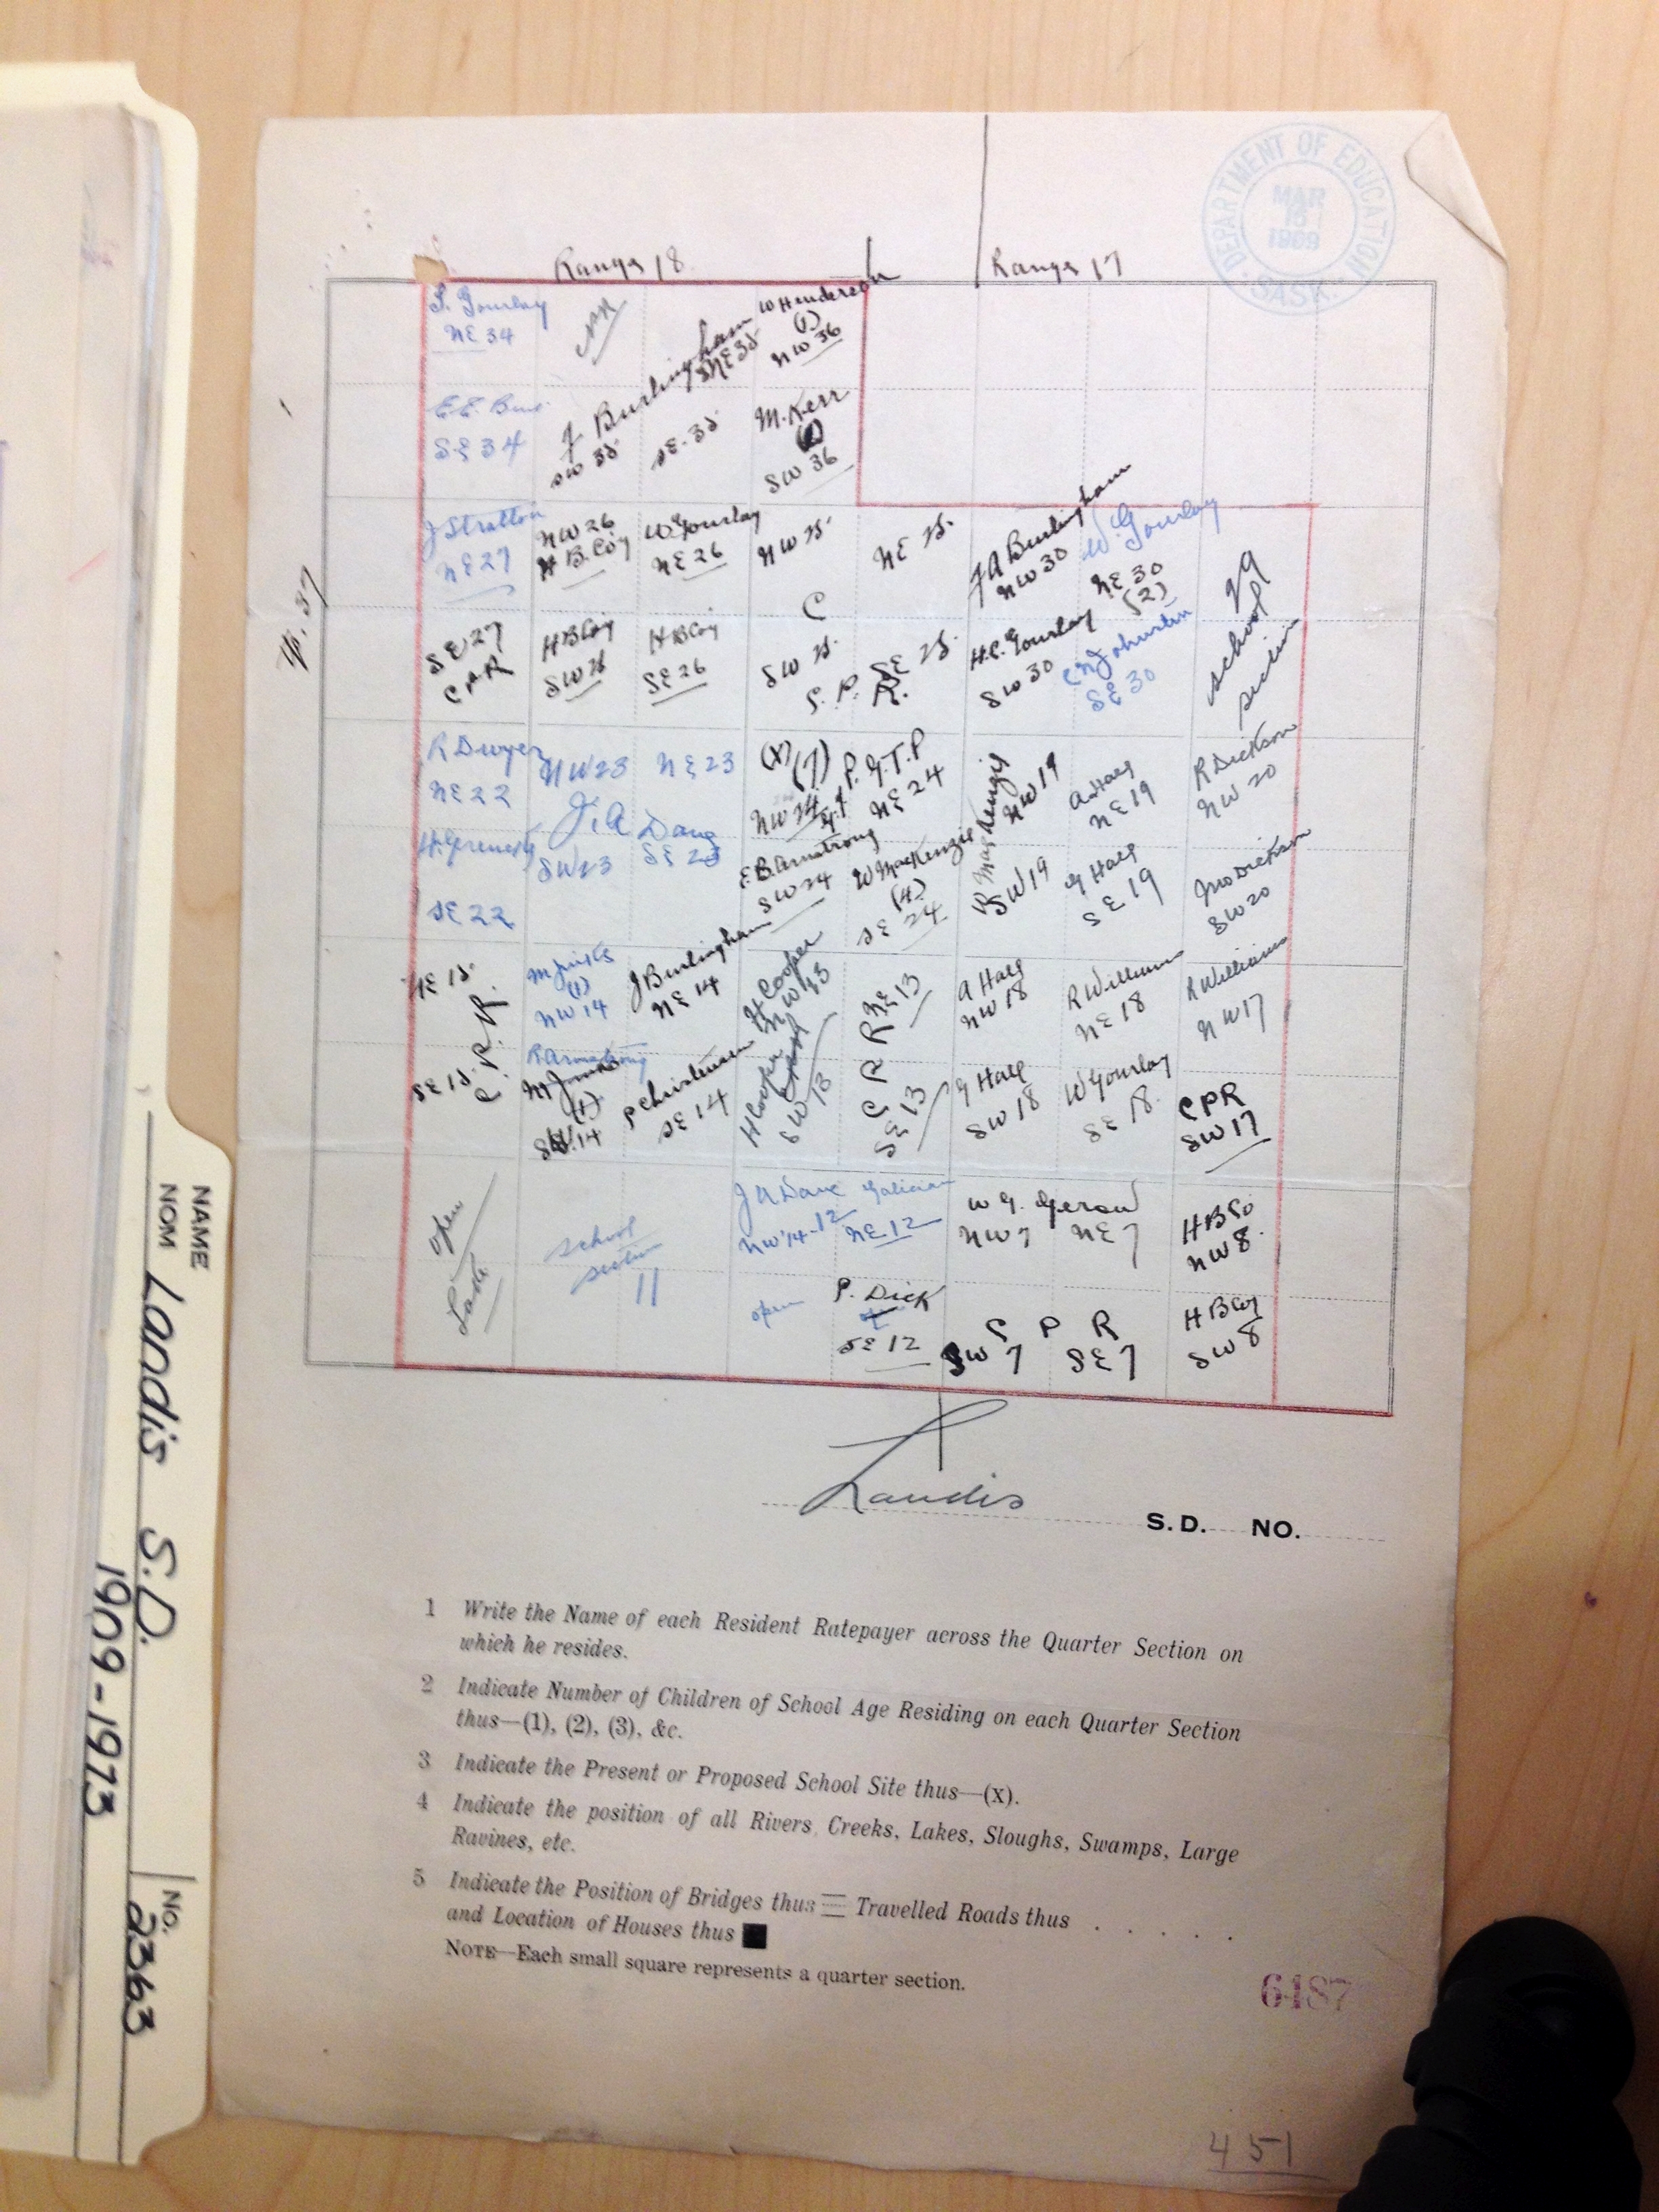 DEPARTMENT OF EDUCATION
MAR
1909
SASK.
Range 18
Range 17
Tp. 37
S. Gourlay
NE 34
W Henderson
(1)
NW 36
J Burlingham
NE 35
E.E.
SE 34
SW 35
SE. 35
M. Kerr
SW 36
J Stratton
NE 27
NW 26
H B. Coy
W. Gourlay
NE 26
NW 25
NE 25
J A Burlingham
NW 30
W. Gourlay
NE 30
(2)
29
school
section
SE 27
CPR
H B Coy
SW 26
H B Coy
SE 26
C
SW 25
P.
SE 25
R.
H.C. Gourlay
SW 30
Johnston
SE 30
R Dwyer
NE 22
NW 23
NE 23
J. A Dane
(X)
(7)
NW 24
P. G.T.P
NE 24
NW 19
A Haeg
NE 19
R Dickson
NW 20
SE 22
SW 23
SE 23
E.B. Armstrong
SW 24
W MacKenzie
(4)
SE 24
R MacKenzie
SW 19
G Haeg
SE 19
Jno Dickson
SW 20
NE 15
C.P.R.
(1)
NW 14
J Burlingham
NE 14
H Cooper
NW 13
NE 13
A Haeg
NW 18
R William
NE 18
R Williams
NW 17
SE 15
R Armstrong
M
(1)
SW 14
P Christensen
SE 14
H Cooper
SW 13
C P R
SE 13
G Haeg
SW 18
W Gourlay
SE 18
CPR
SW 17
open
Lake
school
section
11
J A Dane
NW 14-12
Galician
NE 12
W G. Gerow
NW 7
NE 7
H B Co
NW 8
open
P. Dick
SE 12
C P R
SW 7
SE 7
H B Coy
SW 8
Landis
S.D. NO.
1 Write the Name of each Resident Ratepayer across the Quarter Section on
which he resides.
2 Indicate Number of Children of School Age Residing on each Quarter Section
thus—(1), (2), (3), &c.
3 Indicate the Present or Proposed School Site thus—(x).
4 Indicate the position of all Rivers, Creeks, Lakes, Sloughs, Swamps, Large
Ravines, etc.
5 Indicate the Position of Bridges thus Travelled Roads thus . . . . .
and Location of Houses thus
NOTE—Each small square represents a quarter section.
6487
451
NAME
NOM
Landis S.D.
1909-1973
NO.
2363